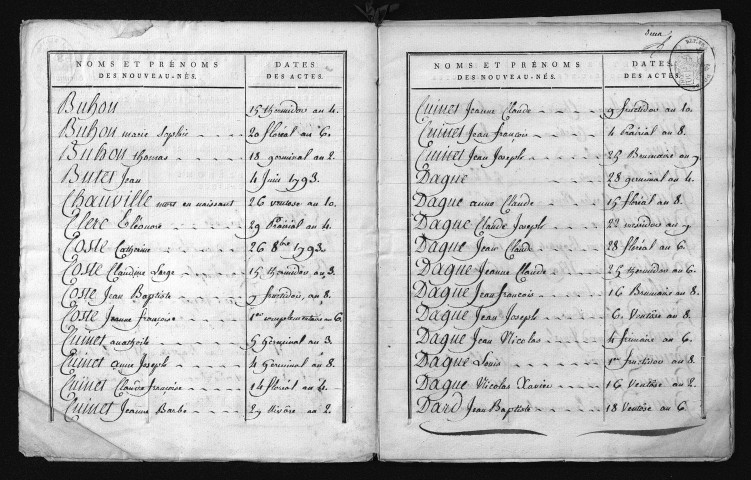 NOMS ET PRÉNOMS DES NOUVEAU-NÉS.
DATES DES ACTES.
Buhon 15 thermidor an 4.
Buhon marie Sophie 20 floréal an 6.
Buhon thomas 18 germinal an 2.
Butet Jean 4 Juin 1793.
Chauville mort en naissant 26 ventose an 10.
Clerc Eléonore 29 Prairial an 4.
Coste Catherine 26 8bre 1793.
Coste Claudine Serge 15 thermidor an 3.
Coste Jean Baptiste 7 fructidor, an 8.
Coste Jeanne françoise 1er complémentaire an 6.
Cuinet anathoile 5 Germinal an 3.
Cuinet anne Joseph 4 Germinal an 8.
Cuinet Claude françoise 14 floréal an 4.
Cuinet Jeanne Barbe 27 Nivôse an 2.
deux
NOMS ET PRÉNOMS DES NOUVEAU-NÉS.
DATES DES ACTES.
Cuinet Jeanne Claude 9 fructidor an 10.
Cuinet Jean françois 4 Prairial an 8.
Cuinet Jean Joseph 25 Brumaire an 7.
Dague 28 germinal an 4.
Dague anne Claude 15 floréal an 8.
Dague Claude Joseph 22 messidor an 7
Dague Jean Claude 28 floréal an 6.
Dague Jeanne Claude 25 thermidor an 6.
Dague Jean françois 16 Brumaire an 8.
Dague Jean Joseph 6 Ventôse an 8.
Dague Jean Nicolas 4 frimaire an 6.
Dague Louis 1er fructidor an 8.
Dague Nicolas Xavier 16 Ventôse an 2.
Dard Jean Baptiste 18 Ventôse an 6.